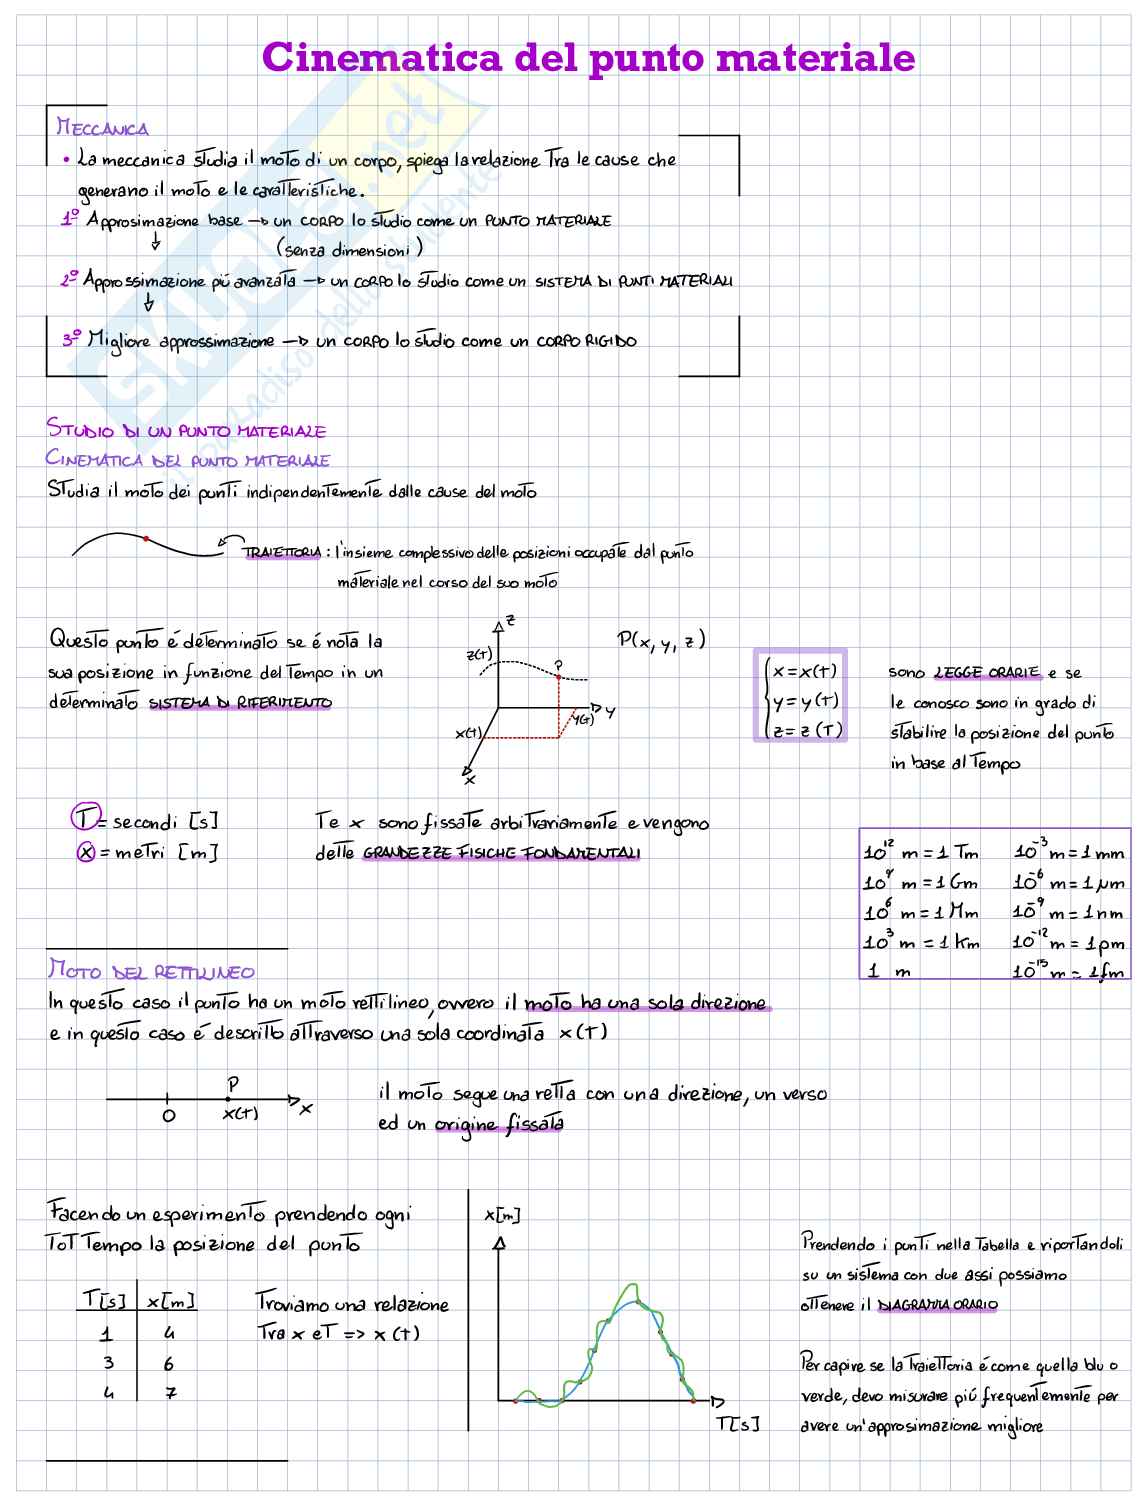 Cinematica del punto materiale
MECCANICA
• La meccanica studia il moto di un corpo, spiega la relazione tra le cause che
generano il moto e le caratteristiche.
1º Approsimazione base → un CORPO lo studio come un PUNTO MATERIALE
(senza dimensioni)
2º Approssimazione piú avanzata → un CORPO lo studio come un SISTEMA DI PUNTI MATERIALI
3º Migliore approssimazione → un CORPO lo studio come un CORPO RIGIDO
SKUOLA.net
il paradiso dello studente
STUDIO DI UN PUNTO MATERIALE
CINEMATICA DEL PUNTO MATERIALE
Studia il moto dei punti indipendentemente dalle cause del moto
TRAIETTORIA : l'insieme complessivo delle posizioni occupate dal punto
materiale nel corso del suo moto
Questo punto é determinato se é nota la
sua posizione in funzione del tempo in un
determinato SISTEMA DI RIFERIMENTO
z
z(t)
P
y
y(t)
x(t)
x
P(x, y, z)
x = x(t)
y = y(t)
z = z(t)
sono LEGGE ORARIE e se
le conosco sono in grado di
stabilire la posizione del punto
in base al tempo
T = secondi [s]
x = metri [m]
T e x sono fissate arbitrariamente e vengono
dette GRANDEZZE FISICHE FONDAMENTALI
10¹² m = 1 Tm 10⁻³ m = 1 mm
10⁹ m = 1 Gm 10⁻⁶ m = 1 µm
10⁶ m = 1 Mm 10⁻⁹ m = 1 nm
10³ m = 1 Km 10⁻¹² m = 1 pm
1 m 10⁻¹⁵ m = 1 fm
MOTO DEL RETTILINEO
In questo caso il punto ha un moto rettilineo, ovvero il moto ha una sola direzione
e in questo caso é descritto attraverso una sola coordinata x(t)
P
O x(t) x
il moto segue una retta con una direzione, un verso
ed un origine fissata
Facendo un esperimento prendendo ogni
TOT tempo la posizione del punto
T[s] x[m]
1 4
3 6
4 7
Troviamo una relazione
tra x e T => x(t)
x[m]
T[s]
Prendendo i punti nella tabella e riportandoli
su un sistema con due assi possiamo
ottenere il DIAGRAMMA ORARIO
Per capire se la traiettoria é come quella blu o
verde, devo misurare piú frequentemente per
avere un'approsimazione migliore